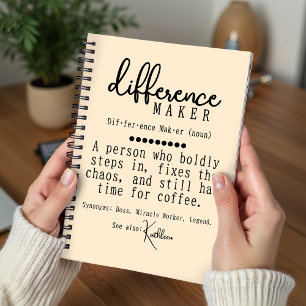 difference
MAKER
Dif·fer·ence Mak·er (noun)
A person who boldly
steps in, fixes the
chaos, and still ha
time for coffee.
Synonyms: Boss, Miracle Worker, Legend.
See also: Kathleen